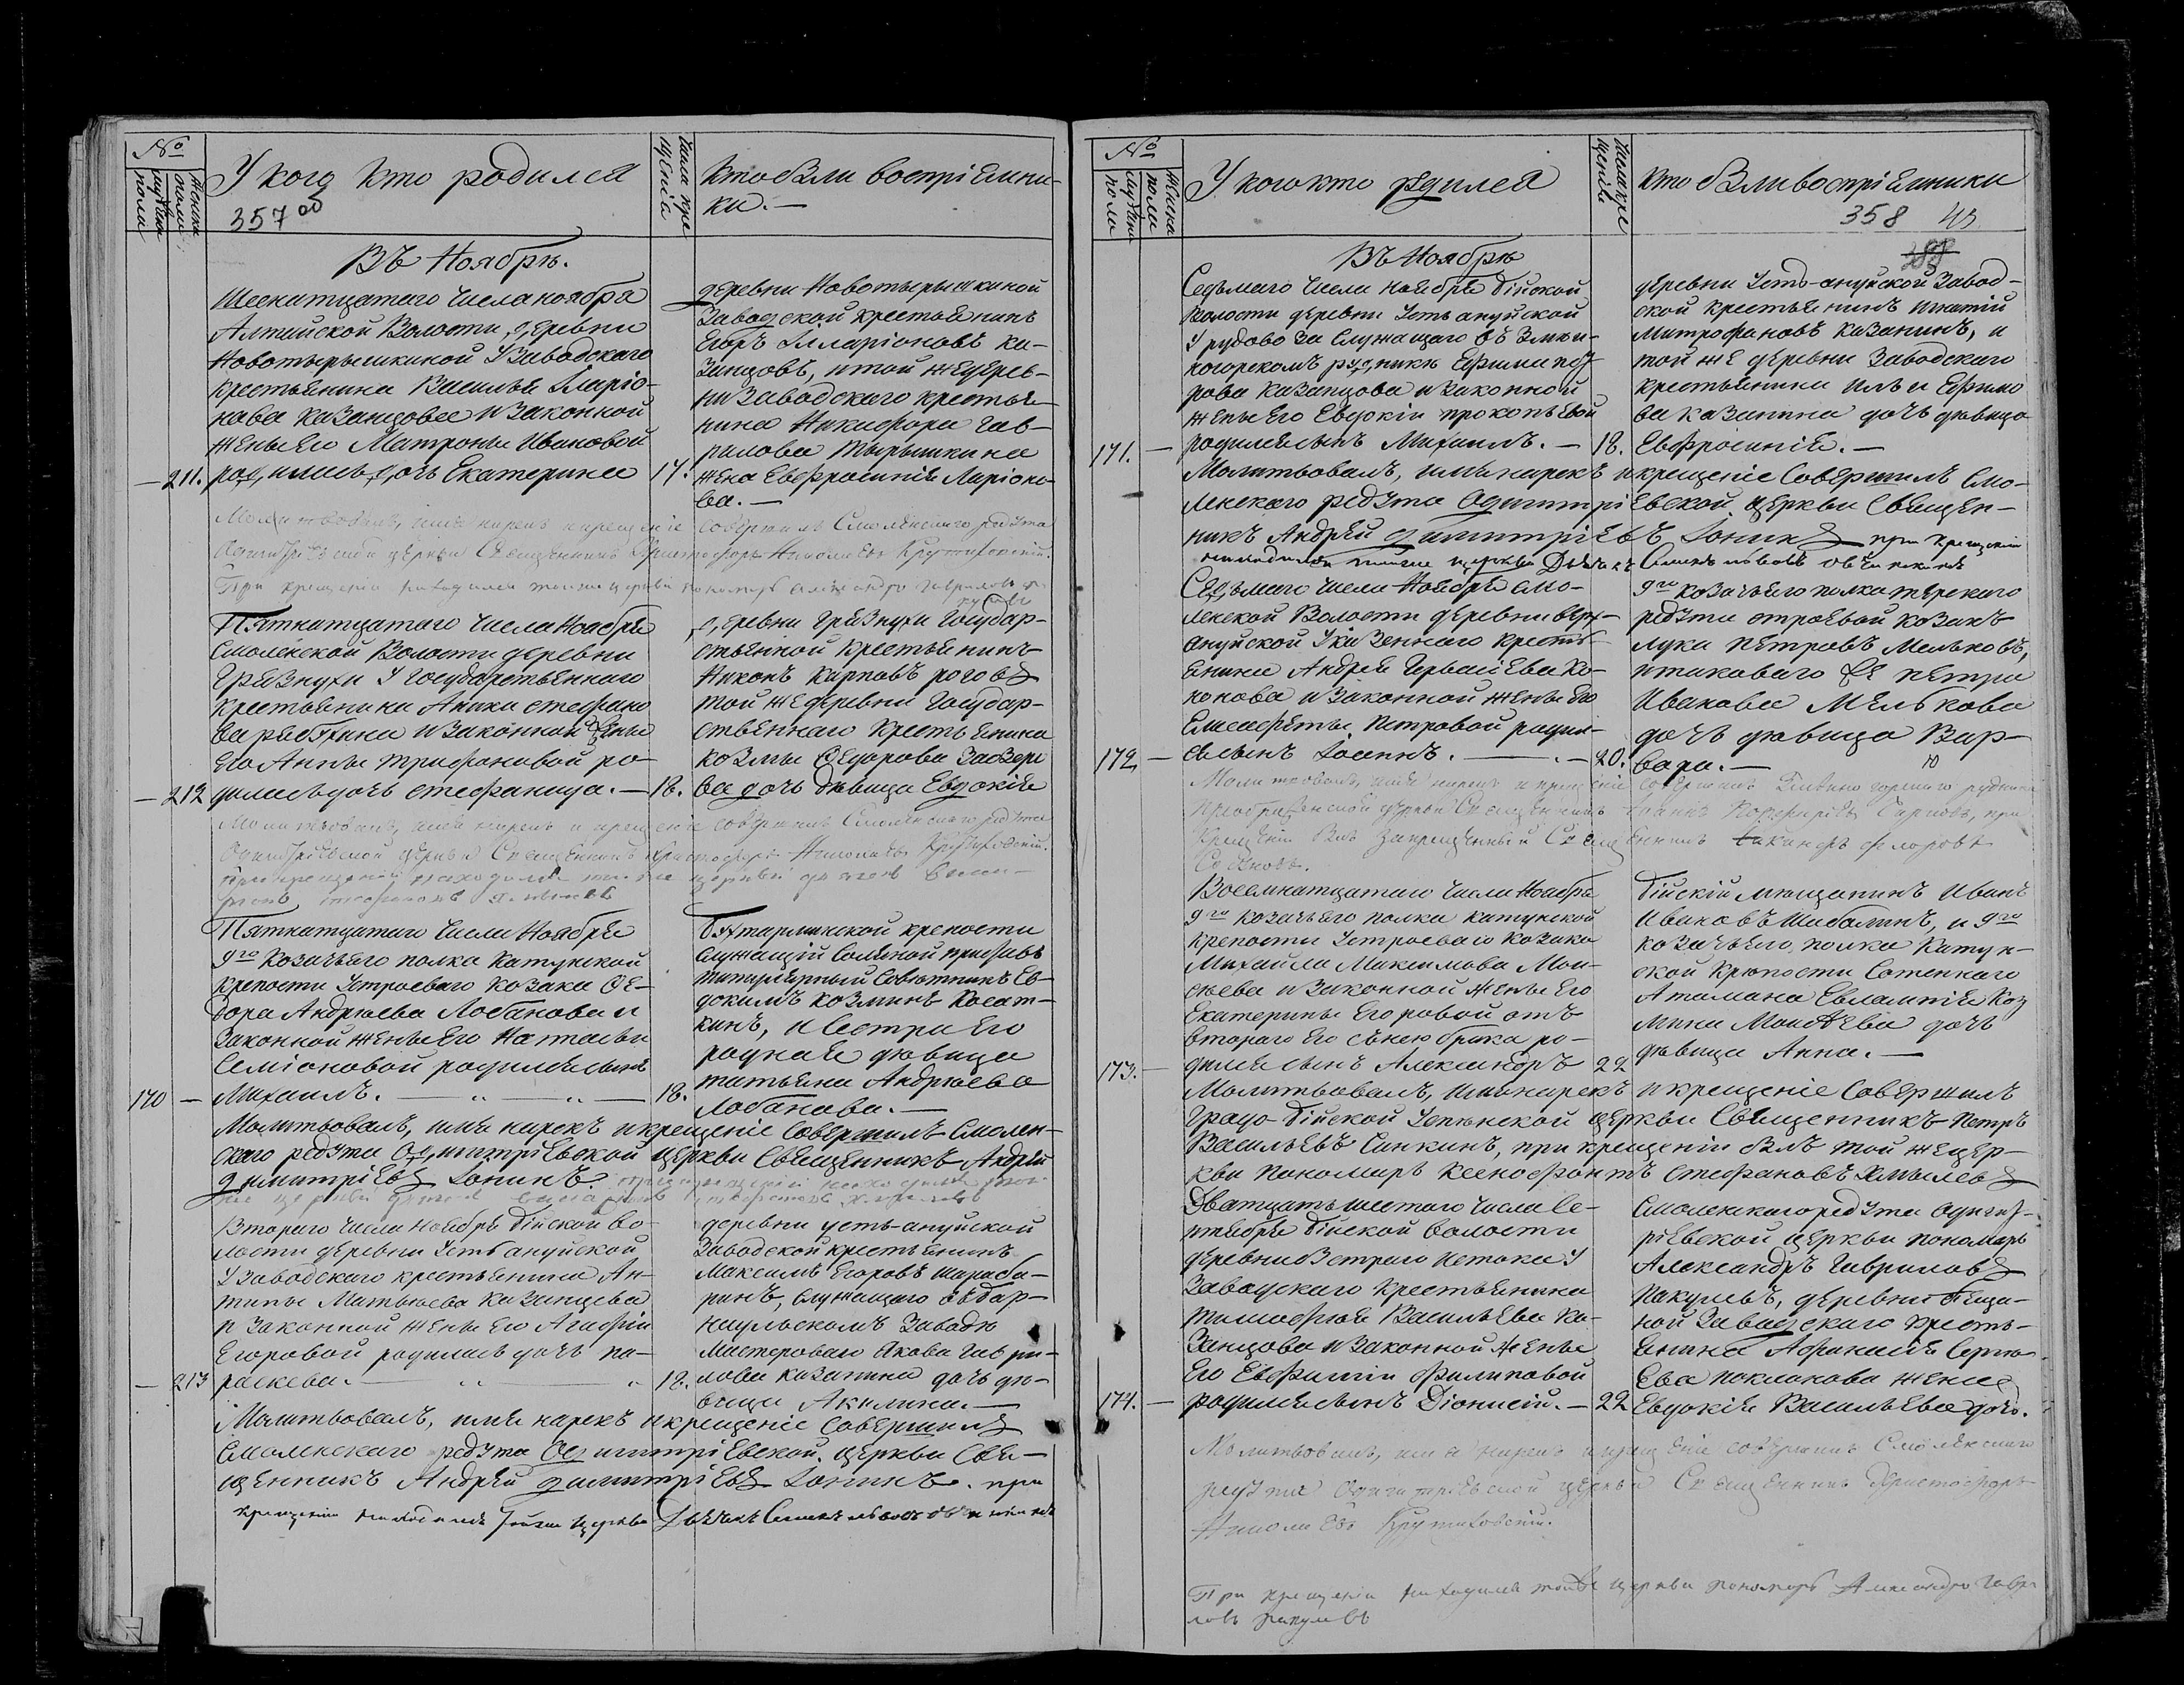 №
Мужска пола
Женска пола
У кого кто родился
Числа крещенія
Кто были воспріемники.—
357 об
Въ Ноябрѣ.
Шеснатцатаго Числа ноября
Алтайской Волости, деревни
Новотырышкиной У Заводскаго
крестьянина Василья Иларіо-
нова Казанцова и Законной
жены Его Матроны Ивановой
—211. родилась дочь Екатерина 17.
деревни Новотырышкиной
Заводской крестьянинъ
Егоръ Илларіоновъ Ка-
занцовъ, и той же дерев-
ни Заводскаго крестья-
нина Никифора Гав-
рилова Тырышкина
жена Евфросинія Ларіоно-
ва.—
Молитвовалъ, имя нарекъ и крещеніе совершилъ Смоленскаго редута
Одигитріевской церкви Священникъ Христофоръ Николаевъ Крутиховскій.
При крещеніи находился тойже церкви пономарь Александръ Гавриловъ
Пятнатцатаго Числа Ноября
Смоленской Волости деревни
Грязнухи У Государственнаго
крестьянина Аники Стефано
ва Рябтина и Законной жены
Его Анны Трифоновой ро-
—212 дилась дочь Стефанида.— 18.
деревни Грязнухи Государ-
ственной Крестьянинъ
Никонъ Карповъ Роговъ
той же деревни Государ-
ственнаго Крестьянина
Козмы Ѳедорова Заозеро
ва дочь дѣвица Евдокія
Молитвовалъ, имя нарекъ и крещеніе совершилъ Смоленскаго редута
Одигитріевской церкви Священникъ Христофоръ Николаевъ Крутиховскій.
При крещеніи находился тойже церкви дьячекъ
Пятнатцатаго Числа Ноября
9го Козачьего полка Катунской
крепости У строеваго Козака Ѳе-
дора Андрѣева Лобанова и
Законной жены Его Натальи
Семіоновой родился сынъ
170 — Михаилъ. — „ — „ — 18.
Бухтарминской крепости
Служащій Соляной приставъ
Титулярный Совѣтникъ Ев-
докимъ Козминъ Косат-
кинъ, и Сестра Его
родная дѣвица
Татьяна Андрѣева
Лобанова.—
Молитвовалъ, имя нарекъ и крещеніе Совершилъ Смолен-
скаго редута Одигитріевской церкви Священникъ Андрей
Димитріевъ Іонинъ.
Втораго Числа Ноября Бійской Во-
лости деревни Усть ануйской
У заводскаго крестьянина Ан-
типы Матвѣева Казанцева
и Законной жены Его Агафіи
Егоровой родилась дочь Па-
— 213 раскева. — „ — „ 18.
деревни усть-ануйской
Заводской крестьянинъ
Максимъ Егоровъ Шараба-
ринъ, Служащаго въ Бар-
наульскомъ Заводѣ
Мастероваго Якова Гаври-
лова Казанина дочь дѣ-
вица Акилина.—
Молитвовалъ, имя нарекъ и крещеніе Совершилъ
Смоленскаго редута Одигитріевской церкви Свя-
щенникъ Андрей Димитріевъ Іонинъ. при
крещеніи находился тойже церкви Дьячекъ Симеонъ
№
Мужска пола
Женска пола
У кого кто родился
Числа крещенія
Кто были воспріемники
358
Въ Ноябрѣ
Седьмаго Числа Ноября Бійской
Волости деревни Усть ануйской
У рудовоза Служащаго въ Змеи-
ногорскомъ рудникѣ Ефима Пет
рова Казанцова и Законной
жены Его Евдокіи Прокопьевой
171. — родился сынъ Михаилъ. — 18.
деревни Усть-ануйской Завод-
ской Крестьянинъ Игнатій
Митрофановъ Казанинъ, и
той же деревни Заводскаго
крестьянина Ильи Ефимо
ва Казанина дочь дѣвица
Евфросинія.—
Молитвовалъ, имя нарекъ и крещеніе Совершилъ Смо-
ленскаго редута Одигитріевской церкви Священ-
никъ Андрей Димитріевъ Іонинъ при крещеніи
находился тойже церкви Дьячекъ Симеонъ
Седьмаго Числа Ноября Смо-
ленской Волости деревни Верх-
ануйской У казеннаго Кресть-
янина Андрея Герваciева Ко-
нонова и Законной жены Его
Елисаветы Петровой родил-
172. — ся сынъ Іоаннъ. — 20.
9го Козачьего полка Терскаго
редута строевой Козакъ
Лука Петровъ Мельковъ,
и таковаго же Петра
Иванова Мелькова
дочь дѣвица Вар-
вара.—
Молитвовалъ, имя нарекъ и крещеніе совершилъ Змѣиногорскаго рудника
Преображенской церкви Священникъ Іоаннъ Порфирьевъ Сырковъ, при
крещеніи былъ Запрещенный Священникъ Никандръ Флоровъ
Восемнатцатаго Числа Ноября
9го Козачьего полка Катунской
крепости У строеваго Козака
Михайла Максимова Мои-
сѣева и Законной жены Его
Екатерины Егоровой отъ
втораго Его съ нею брака ро-
173. — дился сынъ Александръ 22
Бійскій мѣщанинъ Иванъ
Ивановъ Шабалинъ, и 9го
козачьего, полка Катун-
ской Крѣпости Сотеннаго
Атамана Евлампія Коз
мина Моисѣева дочь
дѣвица Анна.—
Молитвовалъ, имя нарекъ и крещеніе Совершилъ
Градо-Бійской Успѣнской Церкви Священникъ Петръ
Васильевъ Синкинъ, при крещеніи былъ той же цер-
кви Пономарь Ксенофонтъ Стефановъ Хмылевъ
Дватцать шестаго Числа Се-
птября Бійской Волости
деревни Встраго Истока У
Заводскаго Крестьянина
Тимофѣя Васильева Ка-
занцова и Законной жены
Его Евфиміи Филиповой
174. — родился сынъ Діонисій.— 22
Смоленскаго редута Одигит-
ріевской церкви пономарь
Александръ Гавриловъ
Пакулевъ, деревни Песча-
ной Заводскаго Кресть-
янина Афанасія Сергѣ
ева Поклакова жена
Евдокія Васильева дочь.
Молитвовалъ, имя нарекъ и крещеніе совершилъ Смоленскаго
редута Одигитріевской церкви Священникъ Христофоръ
Николаевъ Крутиховскій.
При крещеніи находился тойже церкви пономарь Александръ Гаври
ловъ Пакулевъ